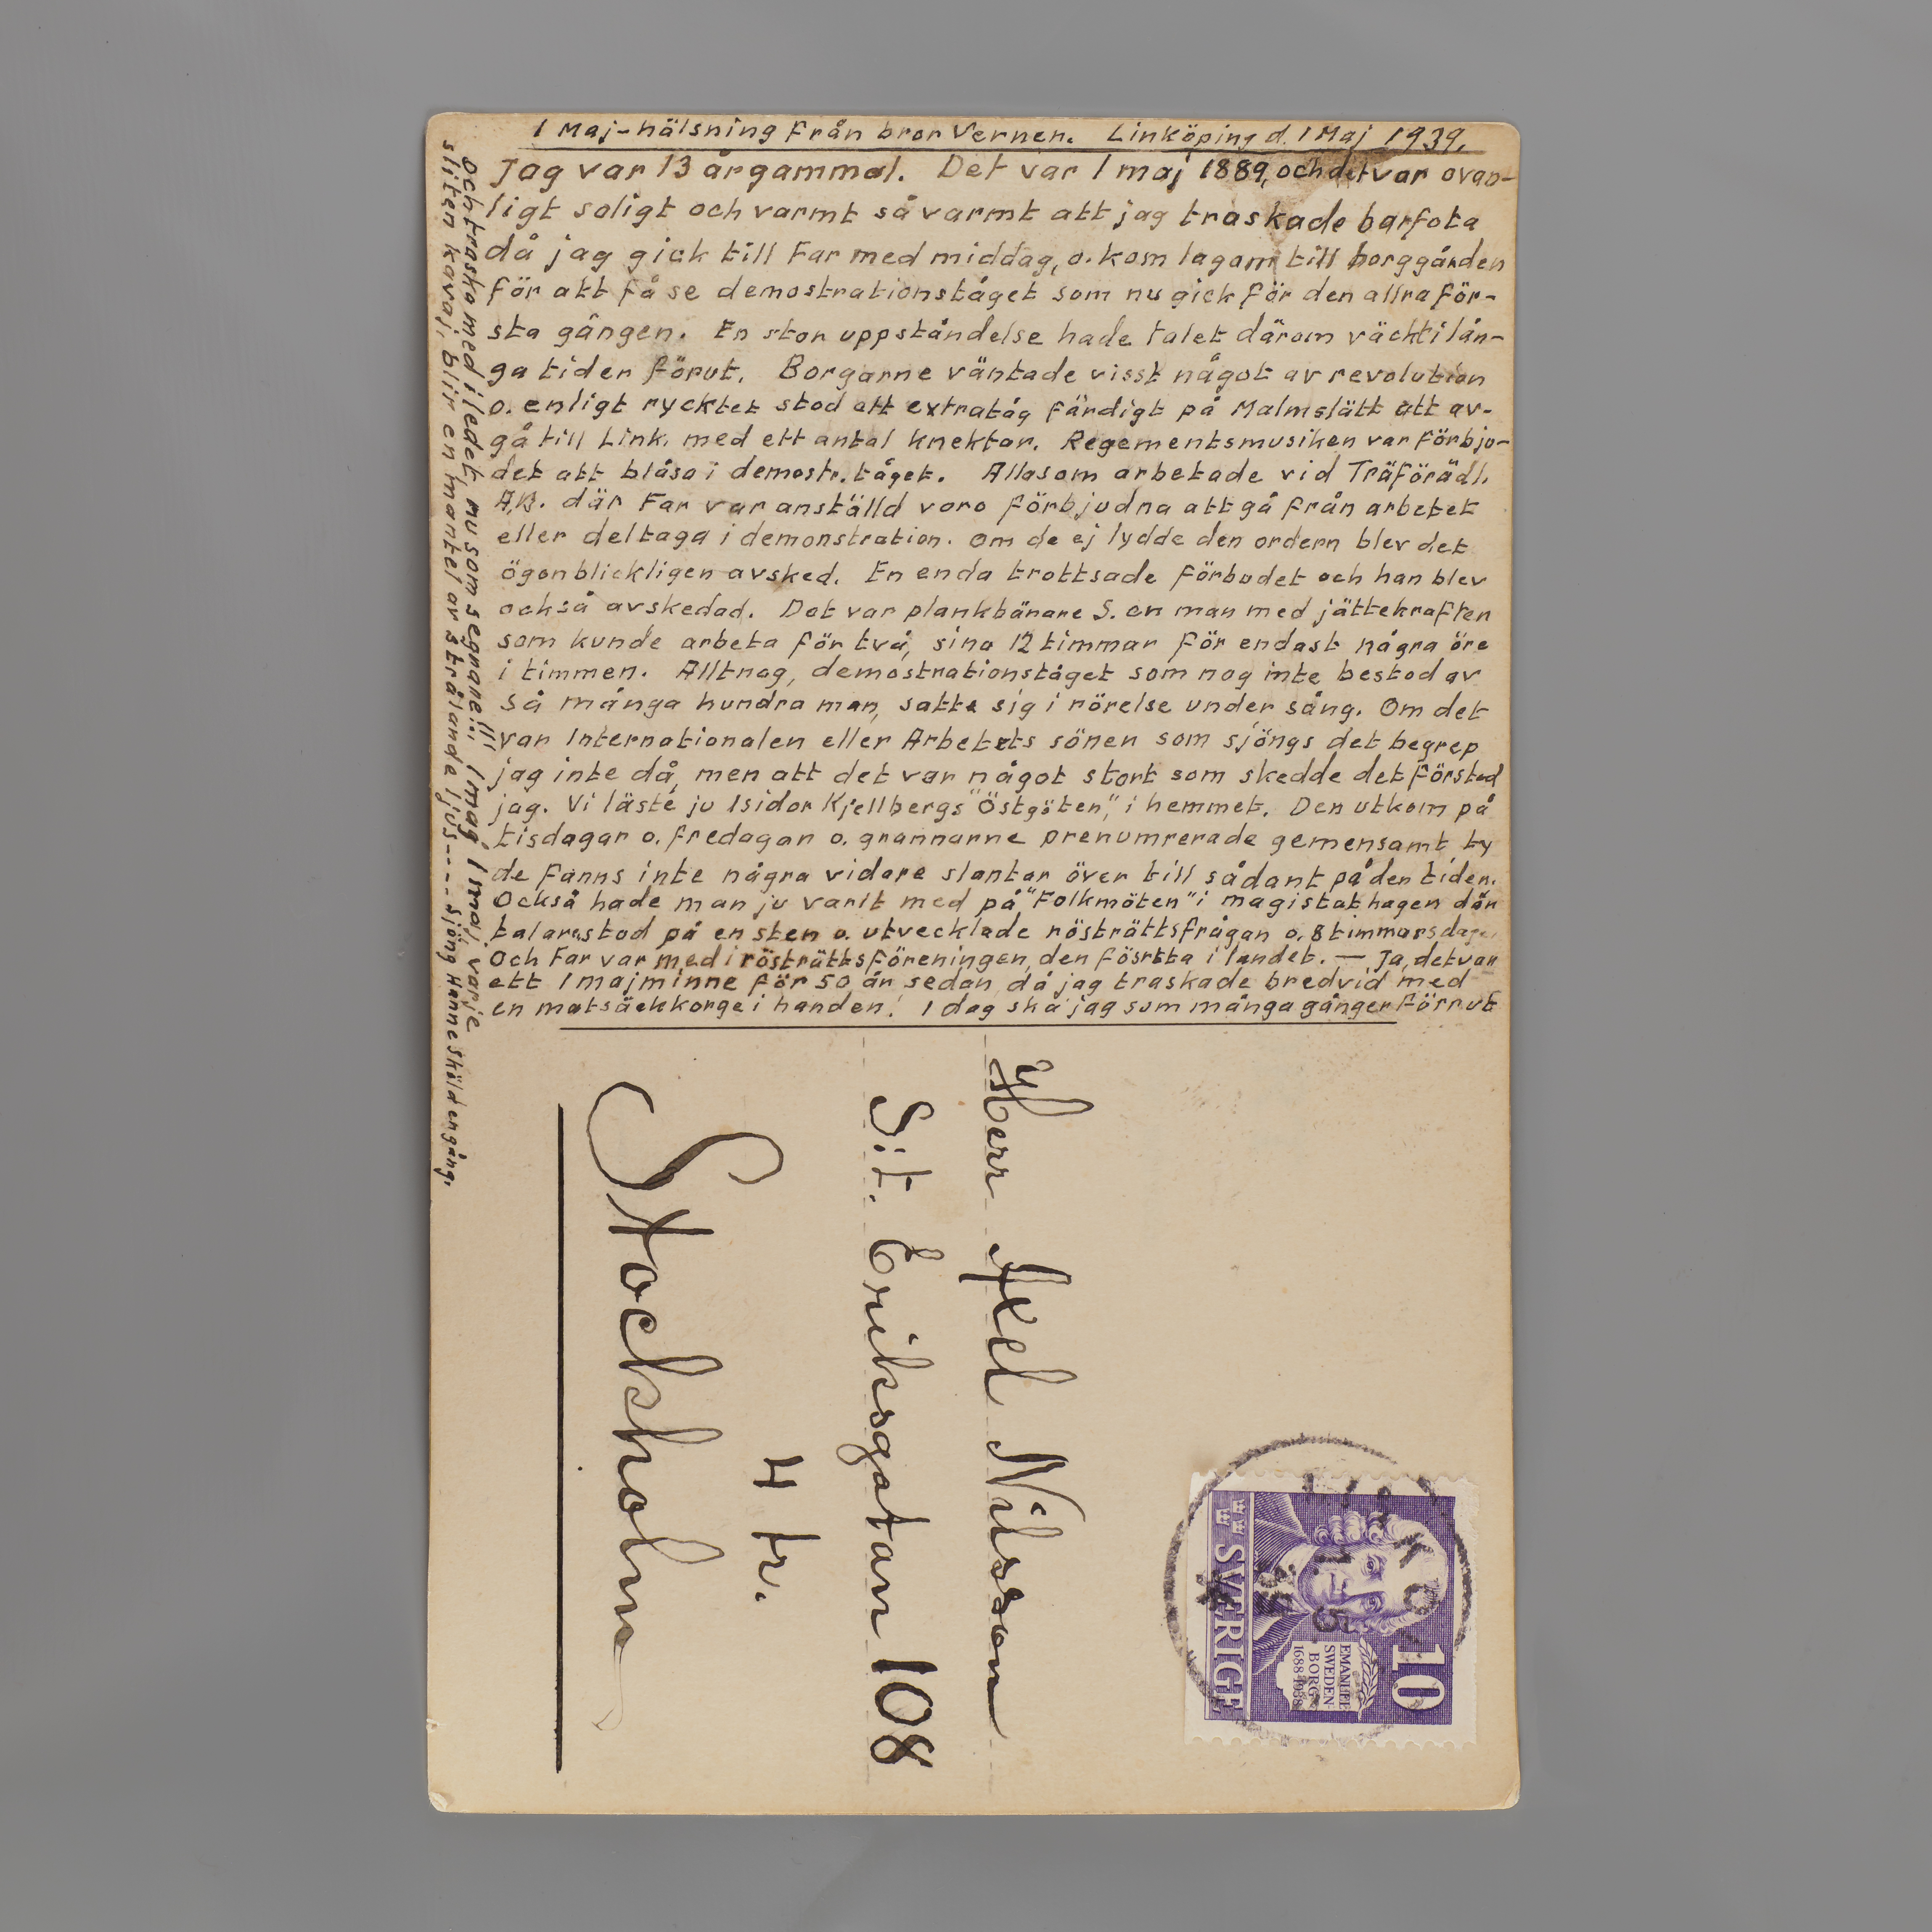 1 Maj-hälsning från bror Verner. Linköping d. 1 Maj 1939.
Jag var 13 årgammal. Det var 1 maj 1889, och det var ovan-
ligt soligt och varmt så varmt att jag traskade barfota
då jag gick till Far med middag, o. kom lagom till borggården
för att få se demostrationståget som nu gick för den allra för-
sta gången. En stor uppståndelse hade talet därom väckt i lån-
ga tider förut. Borgarne väntade visst något av revolution
o. enligt rycktet stod ett extratåg färdigt på Malmslätt att av-
gå till Link. med ett antal knektar. Regementsmusiken var förbju-
det att blåsa i demostr. tåget. Alla som arbetade vid Träförädl.
A.B. där Far var anställd voro förbjudna att gå från arbetet
eller deltaga i demonstration. Om de ej lydde den ordern blev det
ögonblickligen avsked. En enda trottsade förbudet och han blev
också avskedad. Det var plankbärare S. en man med jättekrafter
som kunde arbeta för två, sina 12 timmar för endast några öre
i timmen. Alltnog, demostrationståget som nog inte bestod av
så många hundra man, satte sig i rörelse under sång. Om det
var Internationalen eller Arbetets söner som sjöngs det begrep
jag inte då, men att det var något stort som skedde det förstod
jag. Vi läste ju Isidor Kjellbergs "Östgöten", i hemmet. Den utkom på
tisdagar o. fredagar o. grannarne prenumrerade gemensamt ty
de fanns inte några vidare slantar över till sådant på den tiden.
Också hade man ju varit med på "Folkmöten" i magistathagen där
talare stod på en sten o. utvecklade rösträttsfrågan o. 8 timmarsdagen
Och Far var med i rösträttsföreningen, den fösrtta i landet. — Ja, det var
ett 1 majminne för 50 år sedan då jag traskade bredvid med
en matsäckkorge i handen! I dag ska jag som många gånger förrut
Och traska med i ledet nu som segrare!!! I mag 1 maj varje
sliten kavaj, blir en mantel av strålande ljus---- sjöng Hannesköld engång.
Herr Axel Nilsson
S:t. Eriksgatan 108
4 tr.
Stockholm
10
EMANUEL
SWEDEN-
BORG
1688-1938
SVERIGE